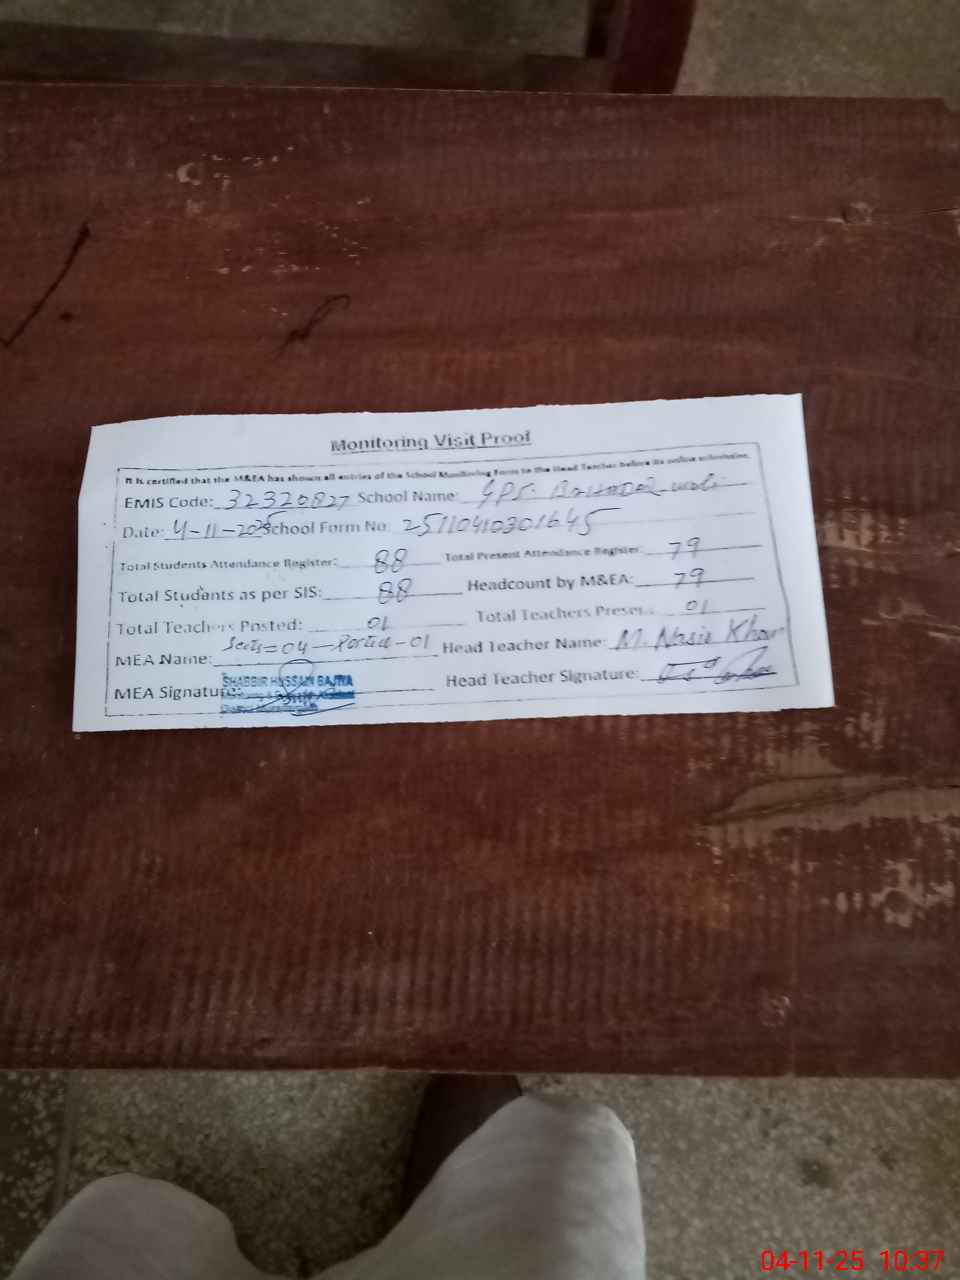 Monitoring Visit Proof
It is certified that the M&EA has shown all entries of the School Monitoring Form to the Head Teacher before its online submission.
EMIS Code: 32320827 School Name: GPS.
Date: 4-11-2025 School Form No: 2511040301645
Total Students Attendance Register: 88 Total Present Attendance Register: 79
Total Students as per SIS: 88 Headcount by M&EA: 79
Total Teachers Posted: 01 Total Teachers Present: 01
MEA Name: = 04 - - 01 Head Teacher Name: M. Nasir Khan
SHABBIR HUSSAIN BAJWA
MEA Signature: Head Teacher Signature:
04-11-25 10:37